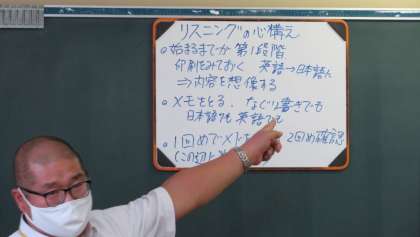 リスニングの心構え
○始まるまでが第1段階
印刷をみておく 英語→日本語に
⇒内容を想像する
○メモをとる. なぐり書きでも
日本語でも英語でも
○1回めでメモを 2回め確認